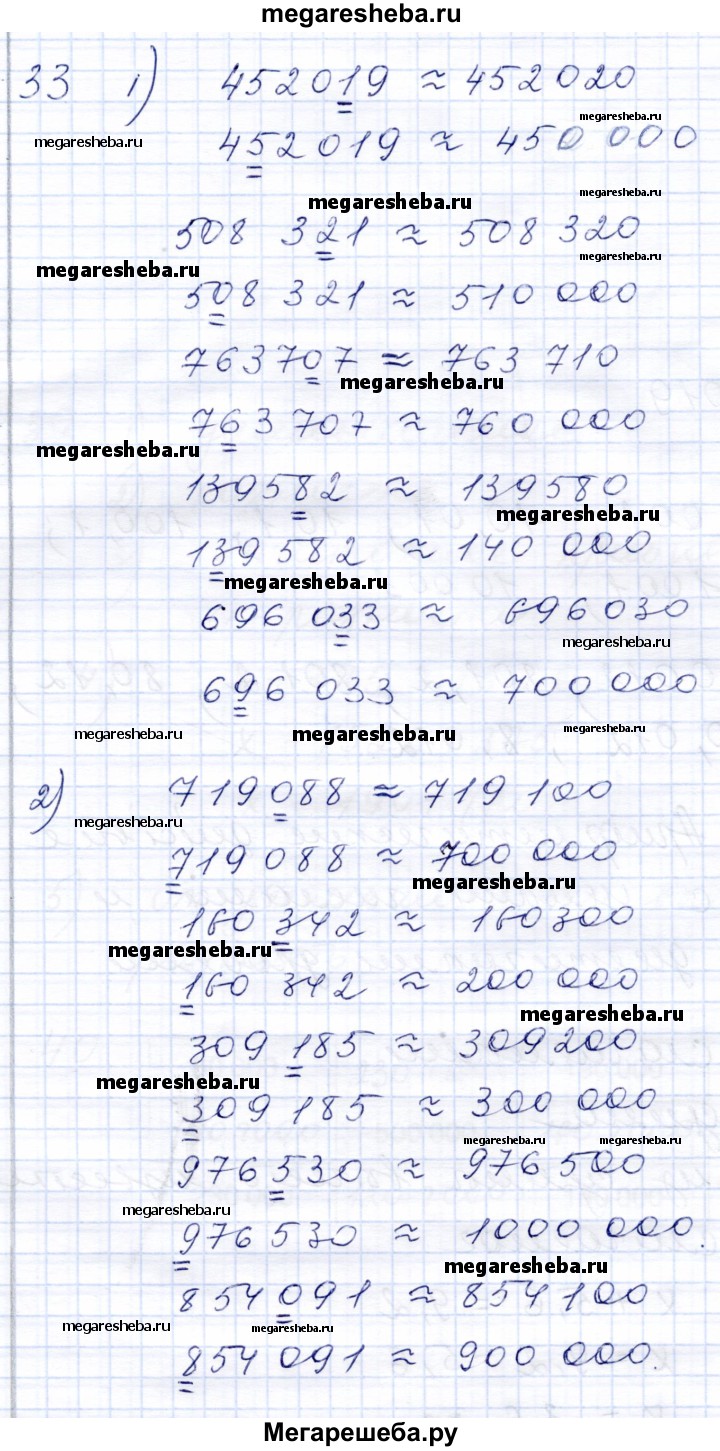 megaresheba.ru
33 1) 452019 ≈ 452020
megaresheba.ru
megaresheba.ru
452019 ≈ 450 000
megaresheba.ru
megaresheba.ru
508 321 ≈ 508 320
megaresheba.ru
megaresheba.ru
508 321 ≈ 510 000
763707 ≈ 763 710
megaresheba.ru
763 707 ≈ 760 000
megaresheba.ru
139582 ≈ 139580
megaresheba.ru
139 582 ≈ 140 000
megaresheba.ru
696 033 ≈ 696030
megaresheba.ru
696 033 ≈ 700 000
megaresheba.ru
megaresheba.ru
megaresheba.ru
2) 719088 ≈ 719 100
megaresheba.ru
719 088 ≈ 700 000
megaresheba.ru
160 342 ≈ 160300
megaresheba.ru
160 342 ≈ 200 000
megaresheba.ru
309 185 ≈ 309200
megaresheba.ru
309 185 ≈ 300 000
megaresheba.ru
megaresheba.ru
976530 ≈ 976 500
megaresheba.ru
976 530 ≈ 1000 000.
megaresheba.ru
854091 ≈ 854100
megaresheba.ru
megaresheba.ru
854 091 ≈ 900 000.
Мегарешеба.ру